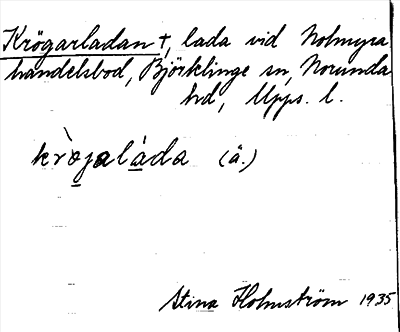 Krögarladan †, lada vid Nolmyra
handelsbod, Björklinge sn, Norunda
hd, Upps. l.
kròjaláda (ä.)
Stina Holmström 1935